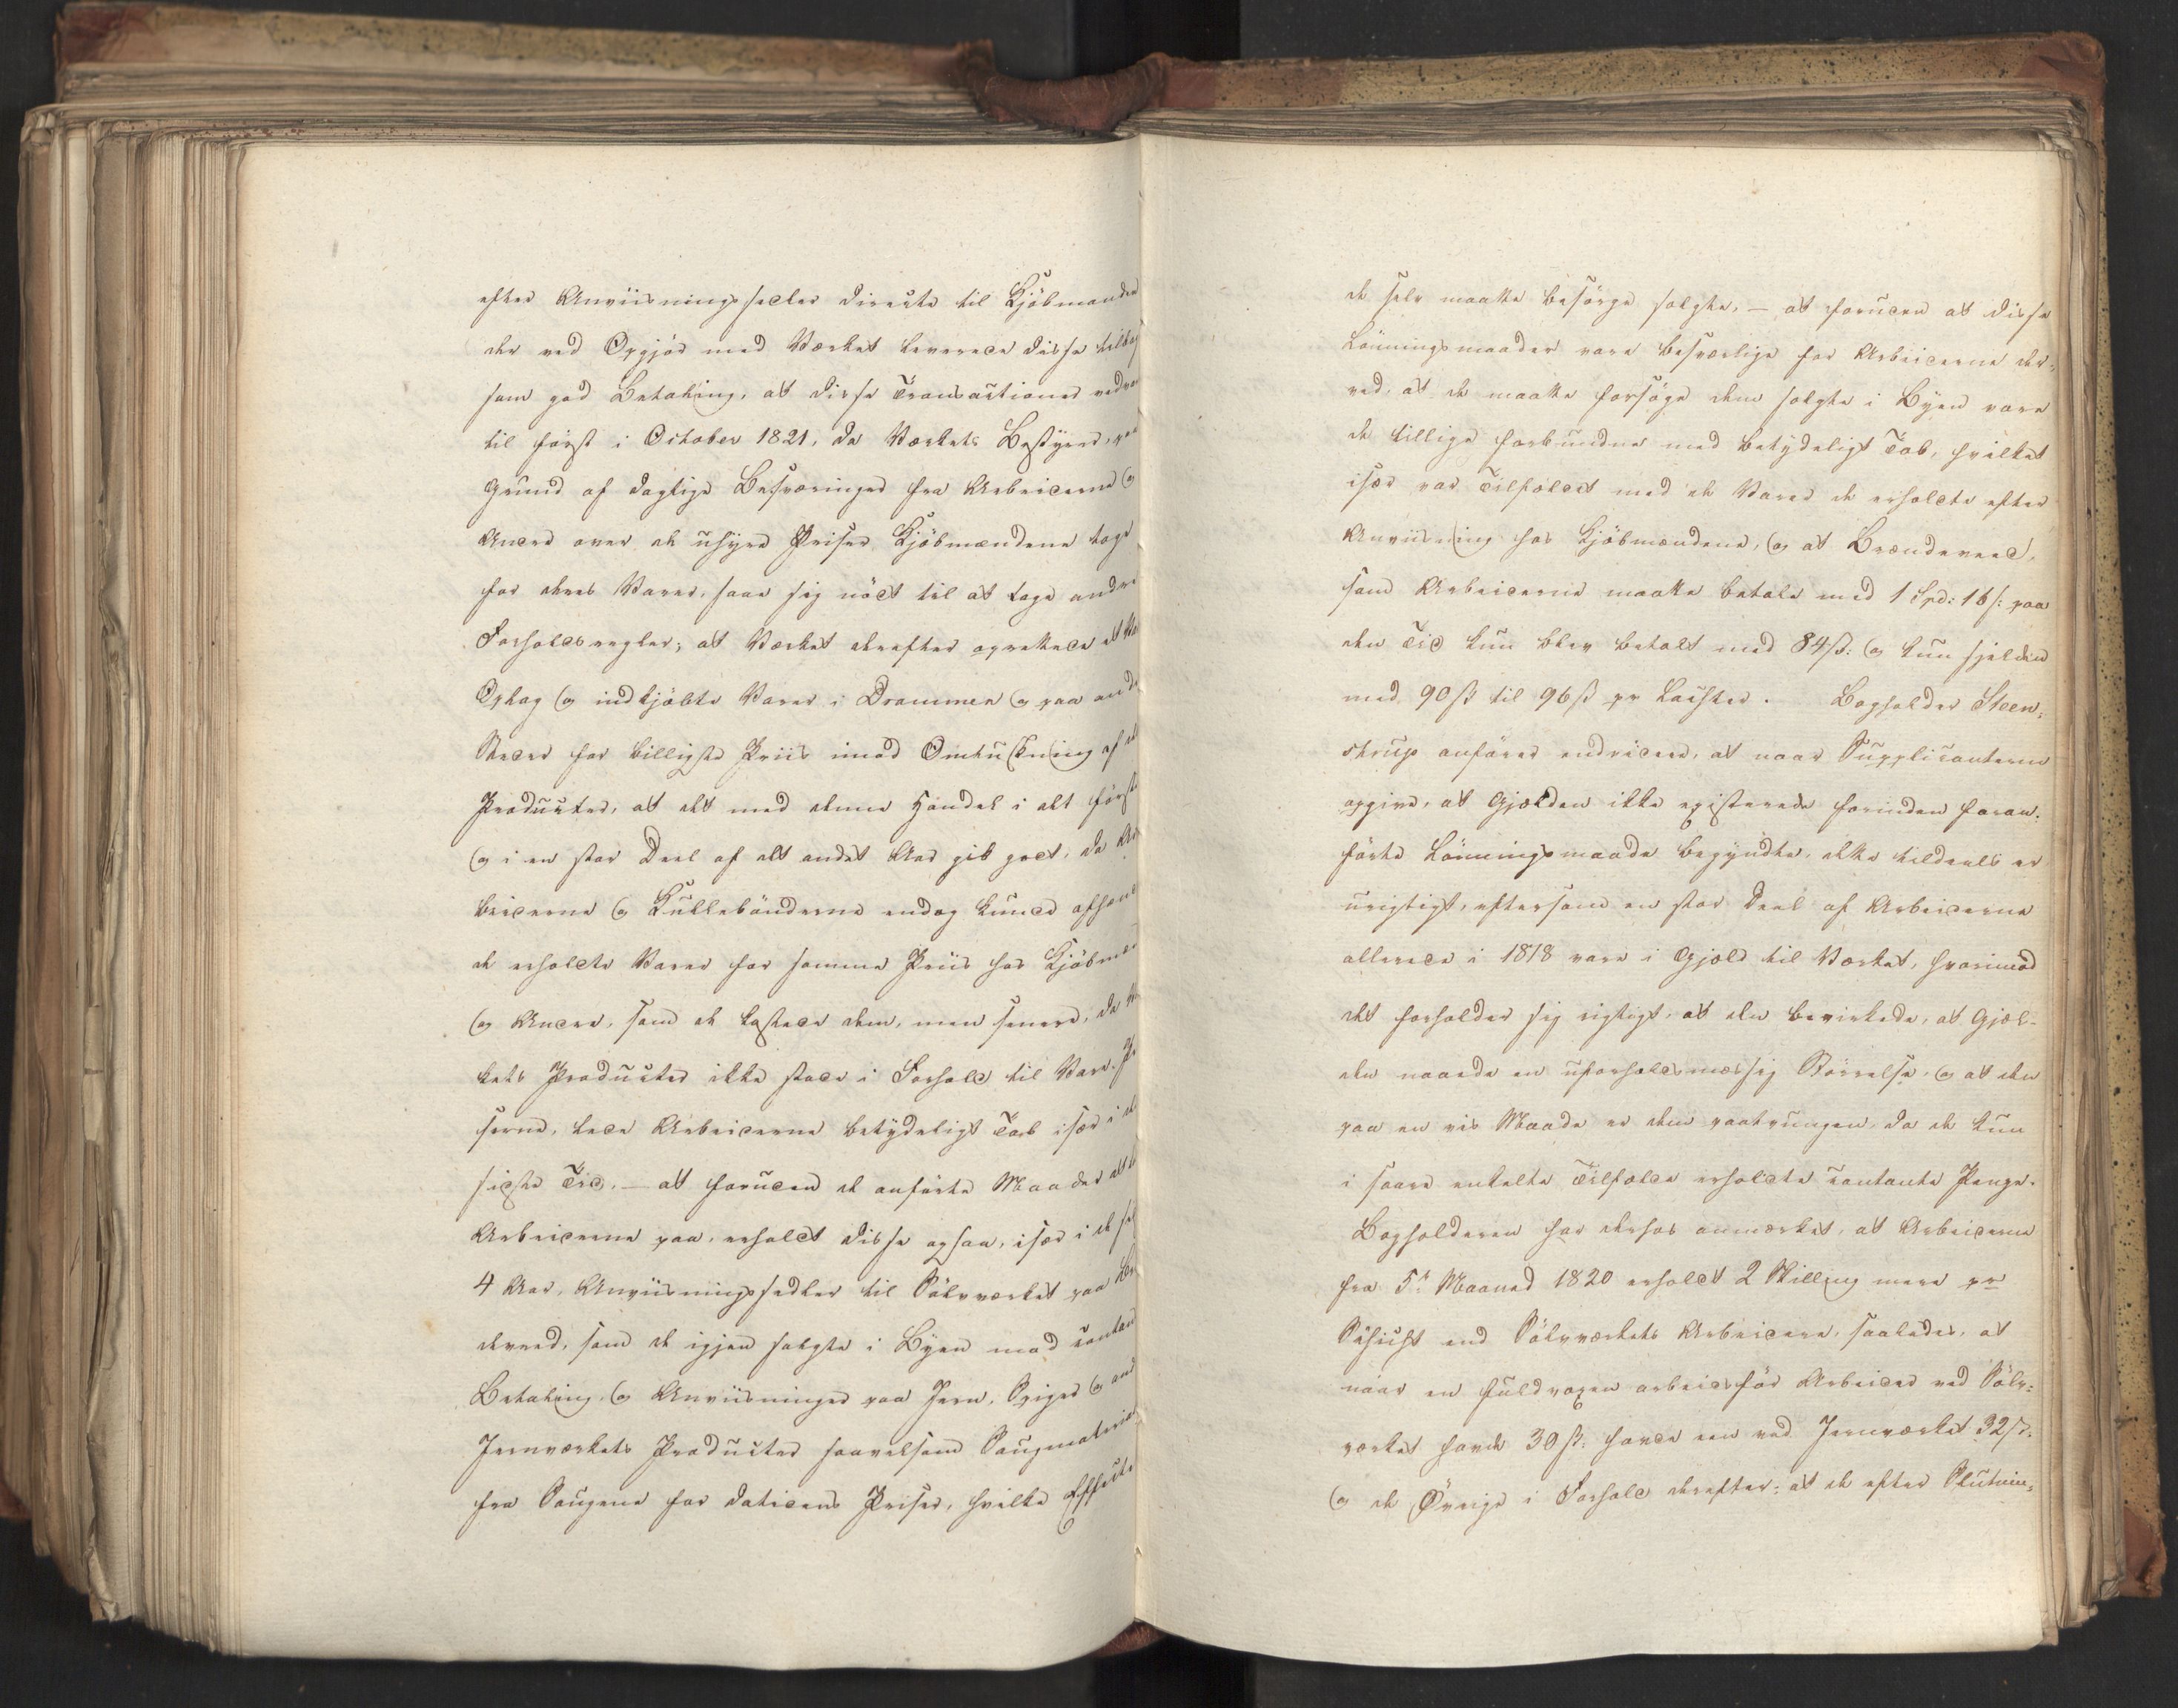 efter Anviisningssedler directe til Kjöbmanden
der ved Opgjör med Værket leverede disse tilbag
som god Betaling, at disse Transactioner vedva
til först i October 1821, da Værkets Bestyrer, paa
Grund af daglige Besværinger fra Arbeiderne og
Andre over de uhyre Priser Kjöbmændene toge
for deres Varer, saae sig nödt til at tage andre
Forholdsregler; at Værket derefter oprettede et
Oplag og indkjöbte Varer i Drammen og paa andre
Steder for billigste Priis imod Omtuskning af
Producter, at det med denne Handel i det förste
og i en stor Deel af det andet Aar gik godt, da Ar
beiderne og Kullebönderne endog kunde afhænd
de erholdte Varer for samme Priis hos Kjöbmæ
og Andre, som de kostede dem, men senere, da
kets Producter ikke stode i Forhold til Vare-Pr
serne, lede Arbeiderne betydeligt Tab især i de
sidste Tid, – at foruden de anförte Maader at
Arbeiderne paa, erholdt disse ogsaa, især i de
4 Aar, Anviisningssedler til Sölvværket paa Br
deved, som de igjen solgte i Byen mod contan
Betaling, og Anviisninger paa Jern, Spiger og and
Jernværkets Producter saavelsom Saugmateria
fra Saugene for datidens Priser, hvilke Effecte
de selv maatte besörge solgte, – at foruden at disse
Lönningsmaader vare besværlige for Arbeiderne der¬
ved, at de maatte forsöge dem solgte i Byen vare
de tillige forbundne med betydeligt Tab, hvilket
især var Tilfældet med de Varer de erholdte efter
Anviisning hos Kjöbmændene, og at Brændeveed,
som Arbeiderne maatte betale med 1 Spd: 16 s: paa
den Tid kun blev betalt med 84 ß: og kun sjelden
med 90 ß til 96 ß pr Lachter. Bogholder Steen¬
strup anförer endvidere, at naar Supplicanterne
opgive, at Gjælden ikke existerede forinden foran¬
förte Lönningsmaade begyndte, dette tildeels er
urigtigt, eftersom en stor Deel af Arbeiderne
allerede i 1818 vare i Gjeld til Værket, hvorimod
det forholder sig rigtigt, at den bevirkede, at Gjæl-
den naaede en uforholdsmæssig Störrelse, og at den
paa en vis Maade er dem paatvungen, da de kun
i saare enkelte Tilfælde erholdte contante Penge.
Bogholderen har derhos anmærket, at Arbeiderne
fra 5te Maaned 1820 erholdt 2 Skilling mere pr
Schicht end Sölvværkets Arbeidere, saaledes, at
naar en fuldvoxen arbeidsför Arbeider ved Sölv¬
værket havde 30 ß: havde een ved Jernværket 32 ß.
og de Övrige i Forhold derefter; at de efter Slutnin¬